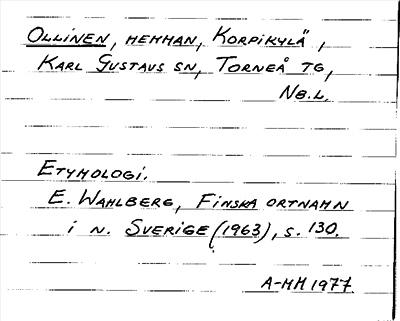 OLLINEN, HEMMAN, KORPIKYLÄ,
KARL GUSTAVS SN, TORNEÅ TG,
NB.L.
ETYMOLOGI.
E. WAHLBERG, FINSKA ORTNAMN
I N. SVERIGE (1963), S. 130.
A-MH 1977